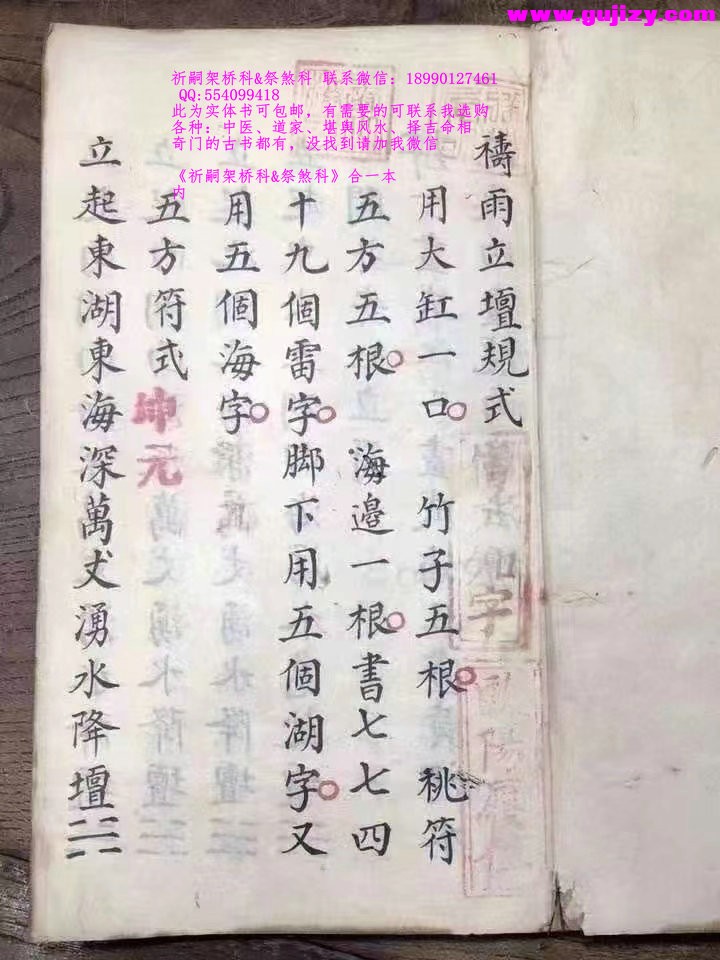 www.gujizy.com
祈嗣架桥科&祭煞科 联系微信：18990127461
QQ:554099418
此为实体书可包邮，有需要的可联系我选购
各种：中医、道家、堪舆风水、择吉命相
奇门的古书都有，没找到请加我微信
《祈嗣架桥科&祭煞科》合一本
内
禱雨立壇規式
用大缸一口 竹子五根 桃符
五方五根 海邊一根書七七四
十九個雷字脚下用五個湖字又
用五個海字
五方符式 坤元
立起東湖東海深萬丈湧水降壇二二一